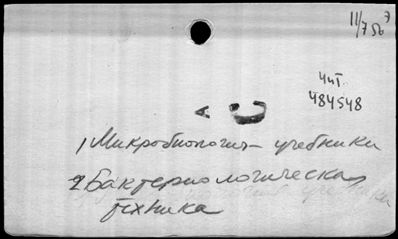 11/756
чит.
484548
А С
1) Микробиология - учебники
2) Бактериологическая
техника